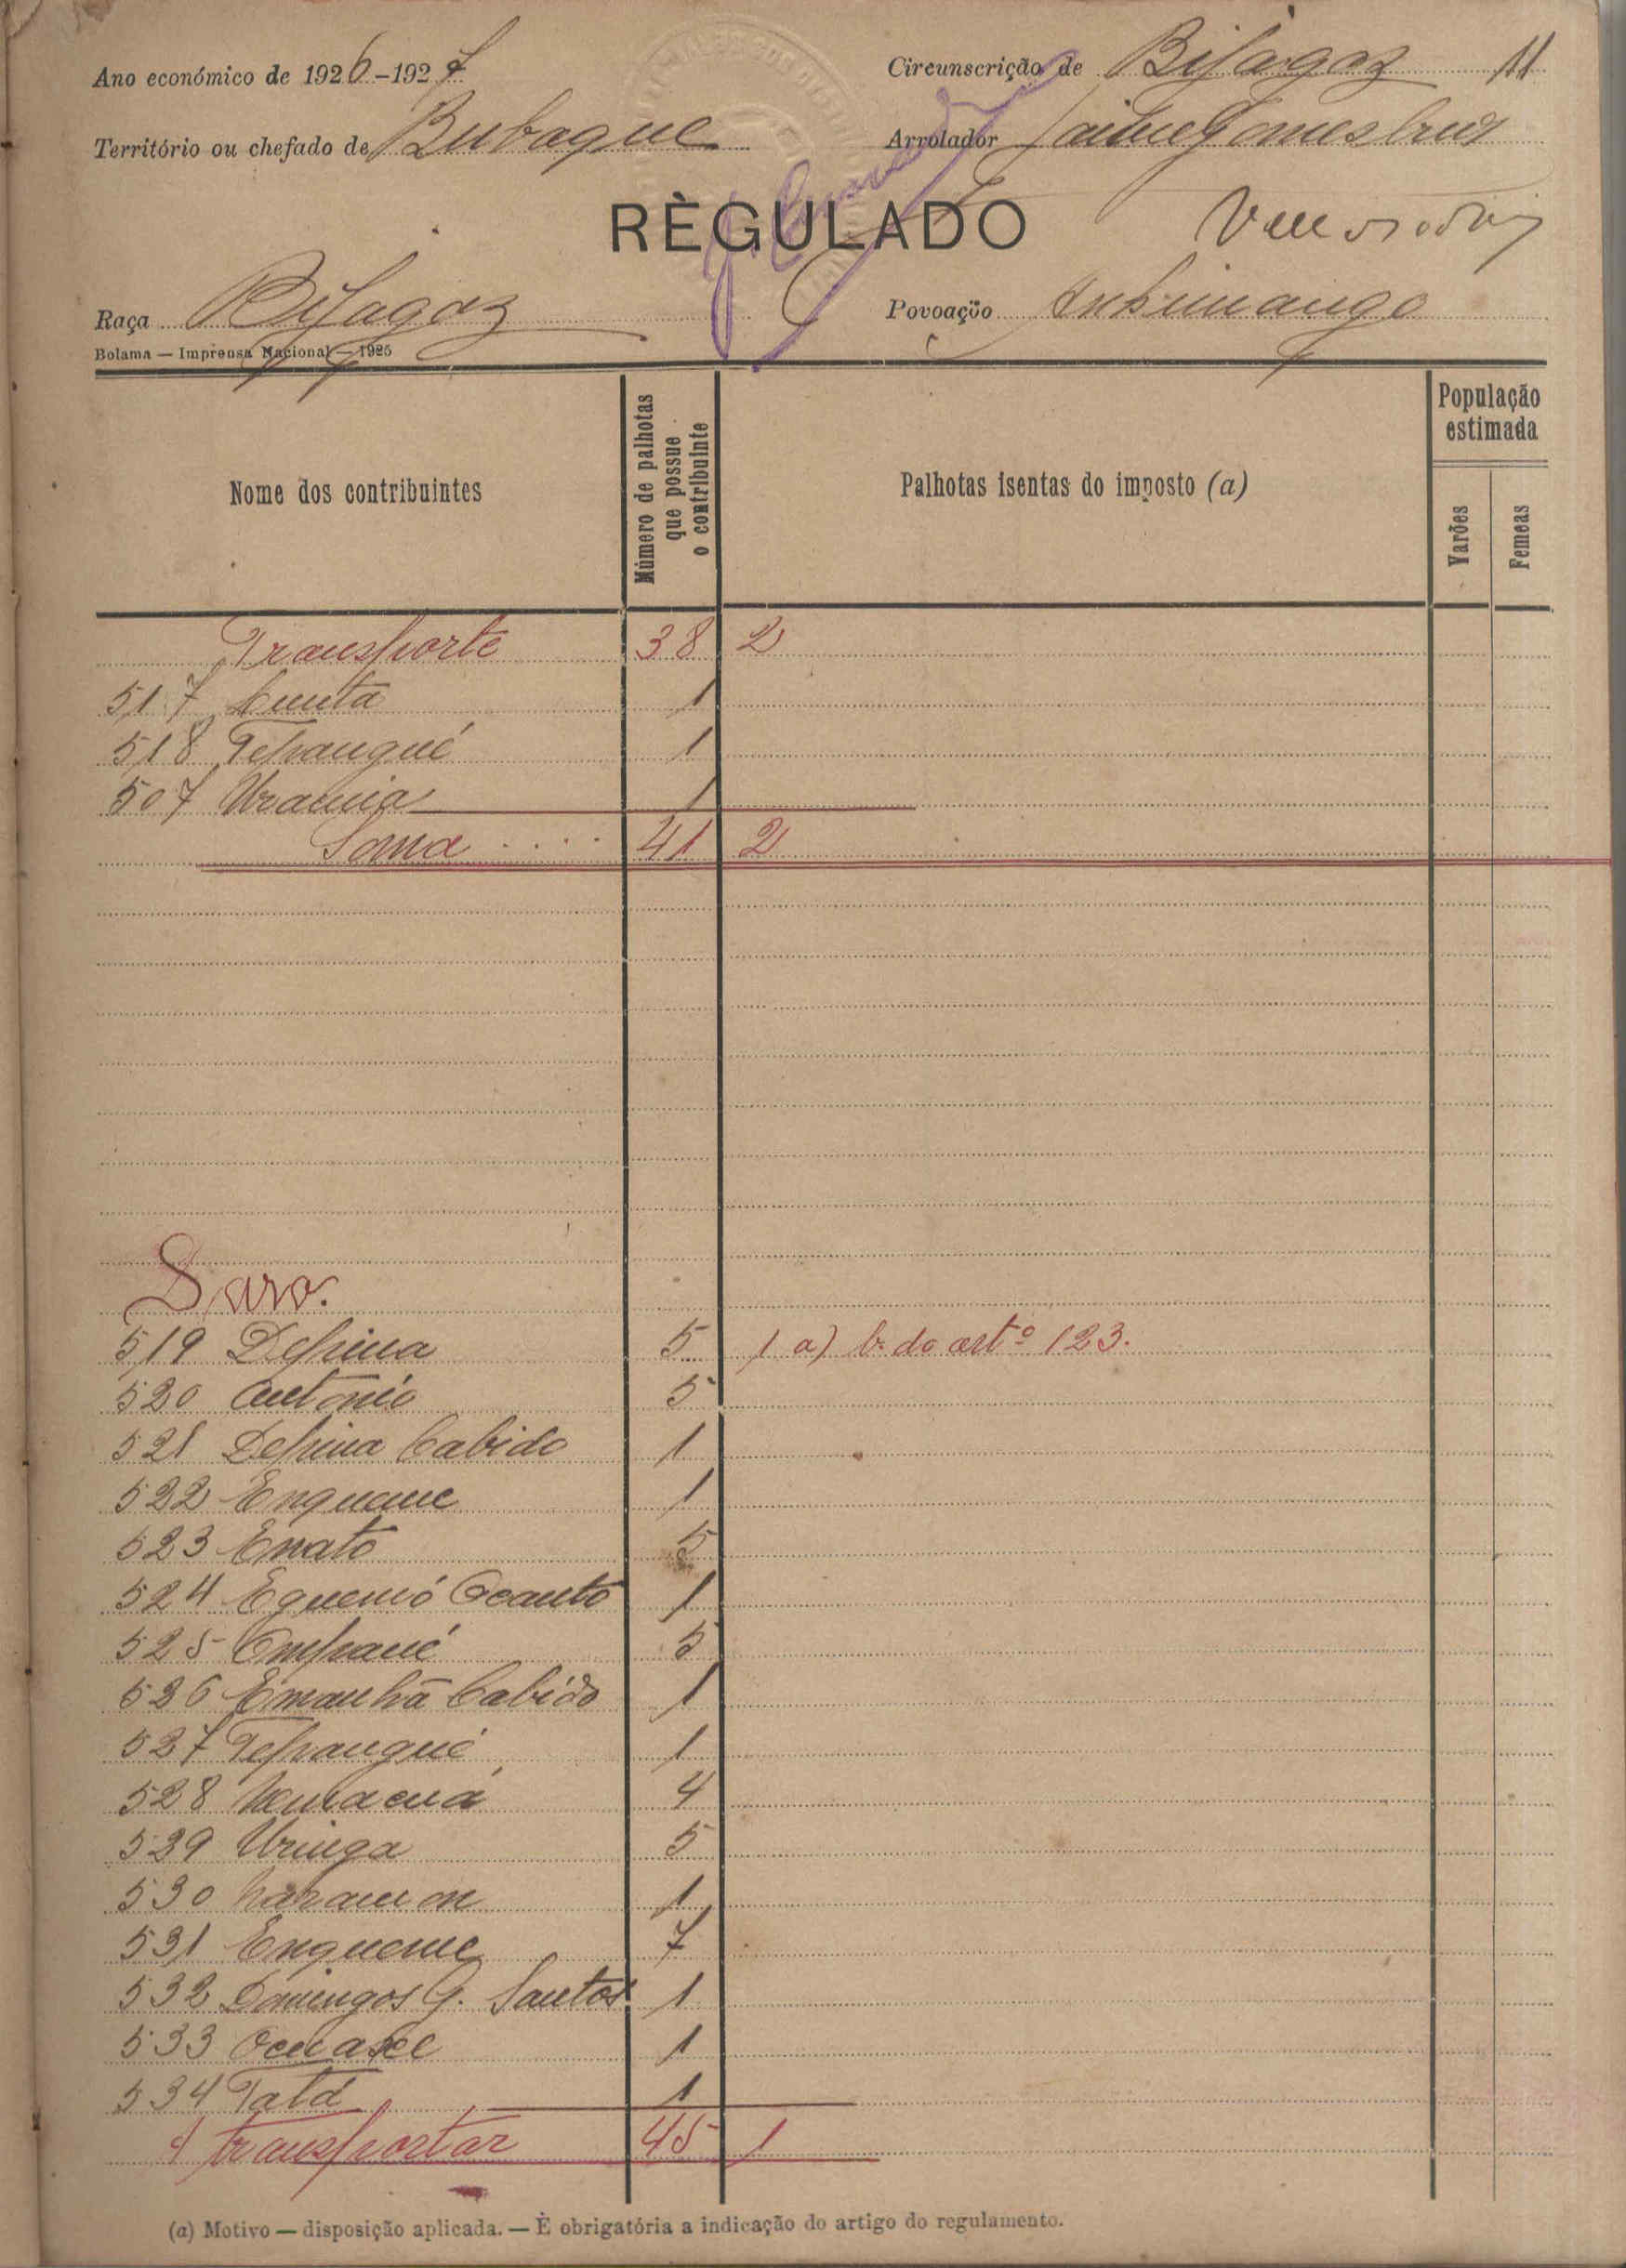 Ano económico de 1926-1927 Circunscrição de Bijagoz 11
Território ou chefado de Bubaque Arrolador Jaime Gomes
RÈGULADO
Raça Bijagoz Povoação
Bolama — Imprensa Nacional — 1925
Nome dos contribuintes
Número de palhotas que possue o contribuinte
Palhotas isentas do imposto (a)
População estimada
Varões
Femeas
Transporte 38 2
517 1
518 Tepangué 1
507 Uracuia 1
Soma .... 41 2
519 Depina 5 1 a) b. do artº 123.
520 Antonio 5
521 Depina Cabido 1
522 Enqueme 1
523 Enato 5
524 1
525 Empané 5
526 Emanhã Cabido 1
527 Tepangué 1
528 4
529 Uringa 5
530 1
531 Enqueme 7
532 Domingos G. Santos 1
533 1
534 Tatá 1
A transportar 45 1
(a) Motivo — disposição aplicada. — È obrigatória a indicação do artigo do regulamento.